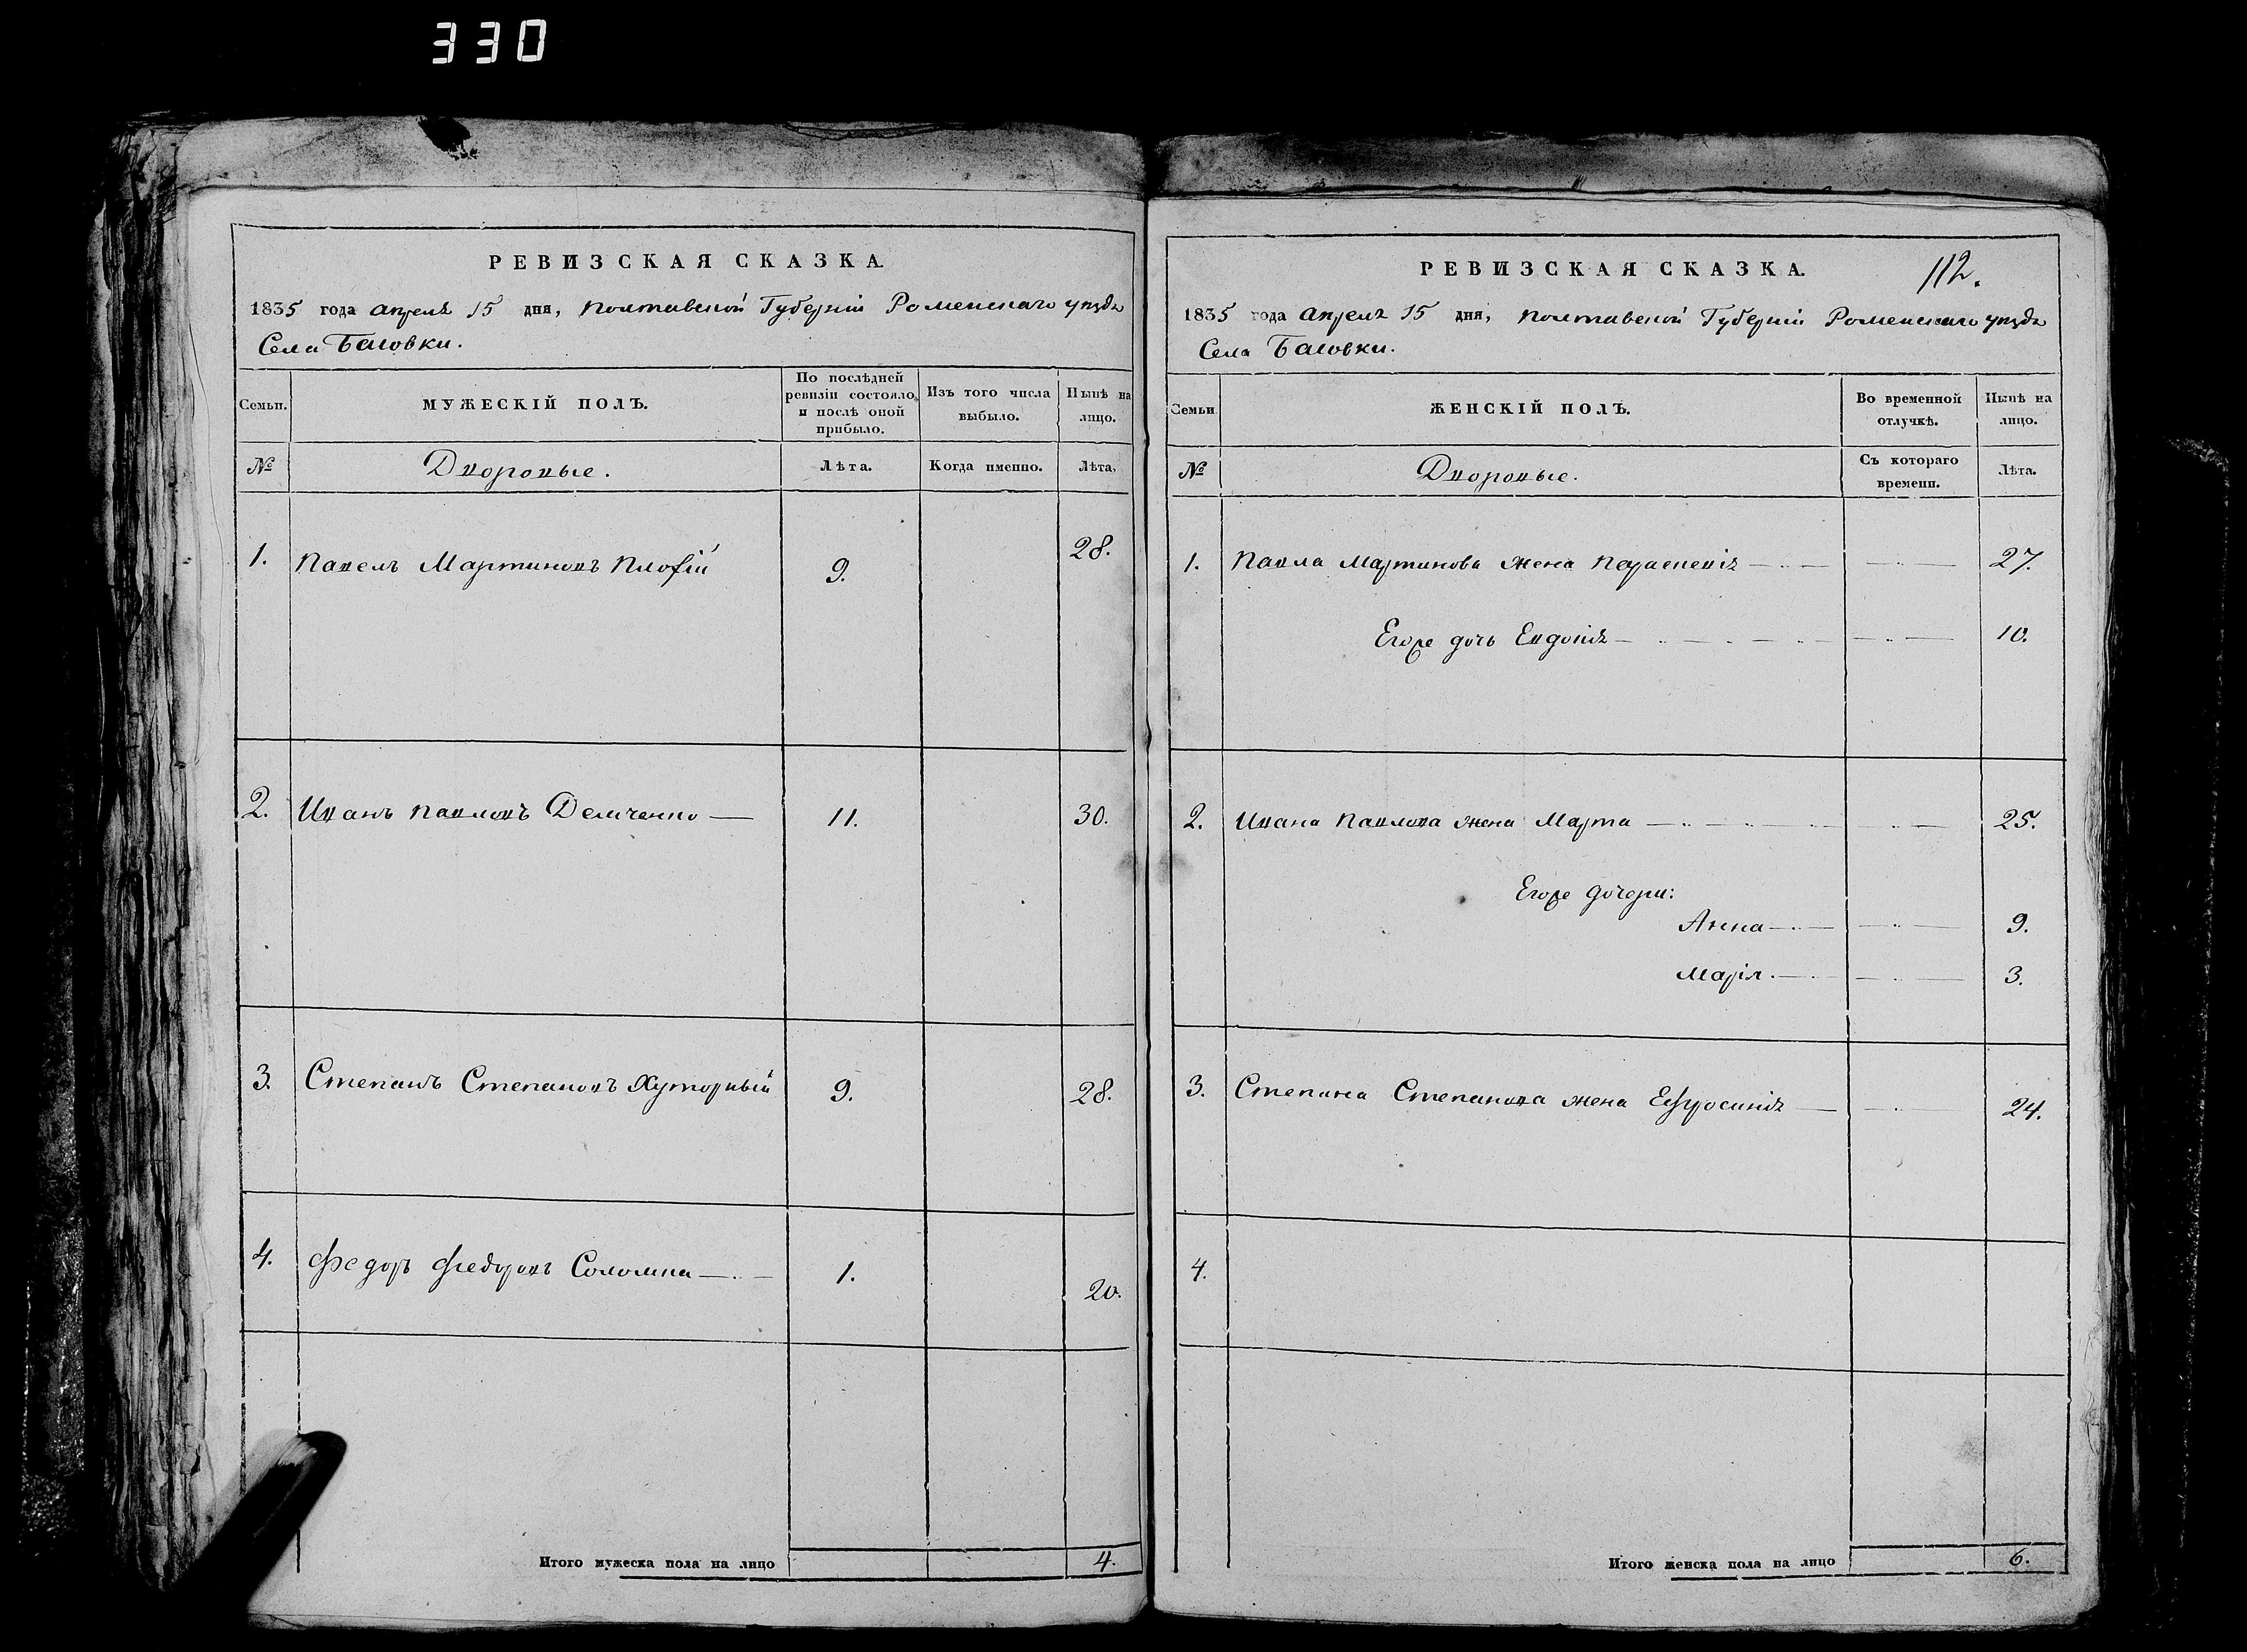 330
РЕВИЗСКАЯ СКАЗКА
1835 года апреля 15 дня, Полтавской Губерніи Роменскаго уезда
Села Басовки.
Семьи.
МУЖЕСКІЙ ПОЛЪ.
По послѣдней ревизіи состояло, и послѣ оной прибыло.
Изъ того числа выбыло.
Нынѣ на лицо.
№
Дворовые.
Лѣта.
Когда именно.
Лѣта.
1. Павелъ Мартиновъ 9. 28.
2. Иванъ Павловъ Демченко 11. 30.
3. Степанъ Степановъ Хуторный 9. 28.
4. Федоръ Федоровъ Соломка 1. 20.
Итого мужеска пола на лицо 4.
112.
РЕВИЗСКАЯ СКАЗКА.
1835 года апреля 15 дня, Полтавской Губерніи Роменскаго уезда
Села Басовки.
Семьи
ЖЕНСКІЙ ПОЛЪ.
Во временной отлучкѣ.
Нынѣ на лицо.
№
Дворовые.
Съ котораго времени.
Лѣта.
1. Павла Мартинова жена Парасковія 27.
Егоже дочь Евдокія 10.
2. Ивана Павлова жена Марта 25.
Егоже дочери:
Анна 9.
Марія 3.
3. Степана Степанова жена Ефросинія 24.
4.
Итого женска пола на лицо 6.